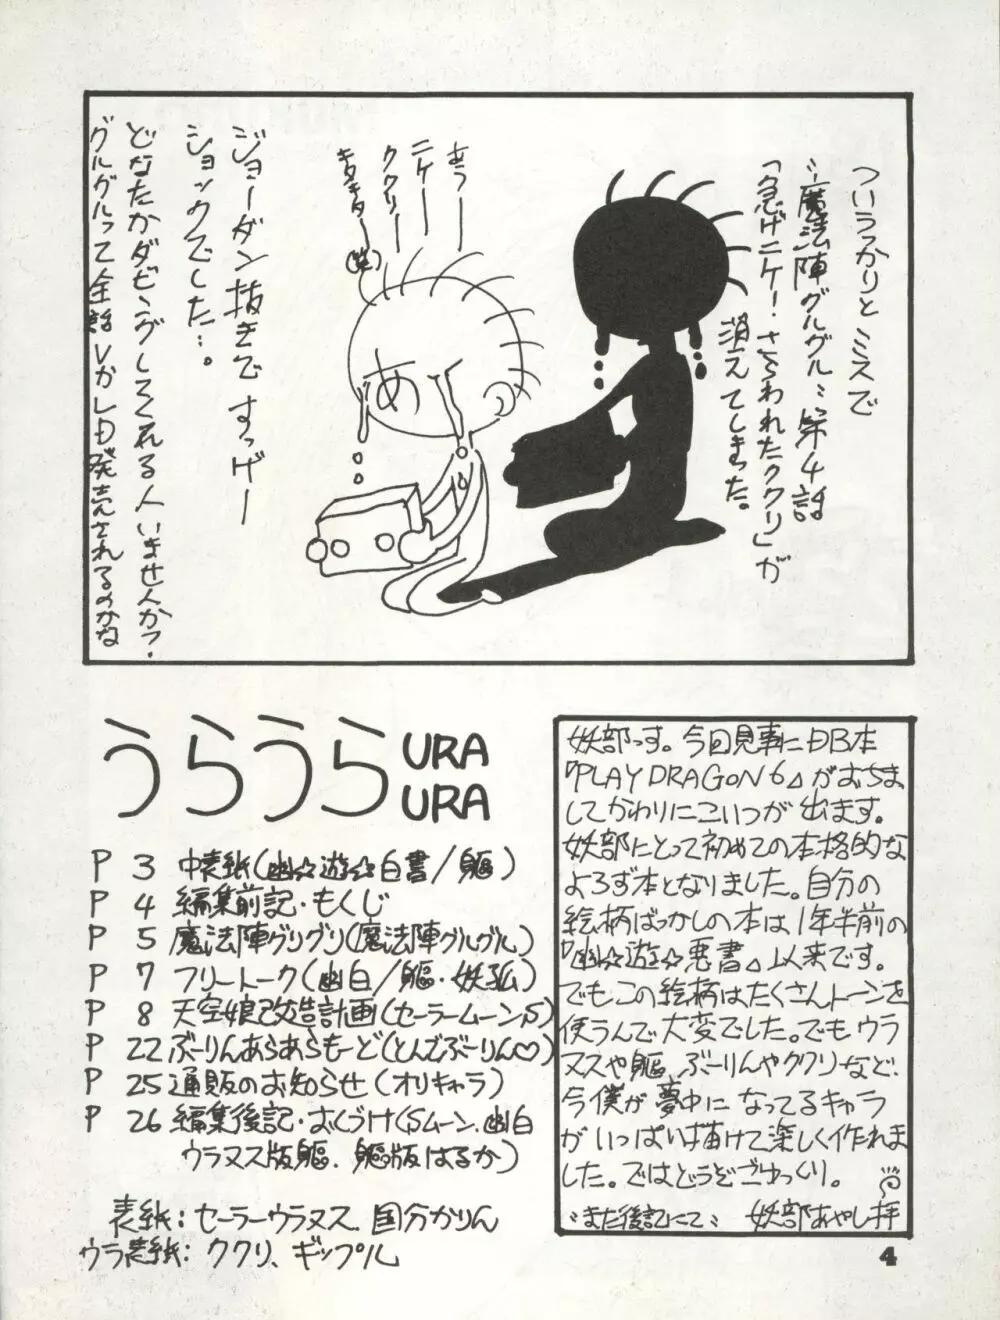 ついうっかりとミスで
〝魔法陣グルグル〟第4話
「急げニケー！さらわれたククリ」が
消えてしまった。
あうー
ニケー
ククリー
キタキター
(笑)
ジョーダン抜きですっげー
ショックでした…。
どなたかダビングしてくれる人いませんか？
グルグルって全話VかLD発売されるのかな
め
うらうら
URA
URA
P 3 中表紙(幽☆遊☆白書/軀)
P 4 編集前記・もくじ
P 5 魔法陣グリグリ(魔法陣グルグル)
P 7 フリートーク(幽白/軀・妖狐)
P 8 天空娘改造計画(セーラームーンS)
P 22 ぶーりんあらあらもーど(とんでぶーりん♡)
P 25 通販のお知らせ(オリキャラ)
P 26 編集後記・おくづけ(Sムーン.幽白
ウラヌス版軀、軀版はるか)
表紙：セーラーウラヌス.国分かりん
ウラ表紙：ククリ、ギップル
妖部っす。今回見事にDB本
『PLAY DRAGON 6』がおちま
してかわりにこいつが出ます。
妖部にとって初めての本格的な
よろず本となりました。自分の
絵柄ばっかしの本は1年半前の
『幽☆遊☆悪書』以来です。
でもこの絵柄はたくさんトーンを
使うんで大変でした。でもウラ
ヌスや軀、ぶーりんやククリなど、
今僕が夢中になってるキャラ
がいっぱい描けて楽しく作れま
した。ではどうぞごゆっくり。
〝また後記にて〟 妖部あやし拝
4